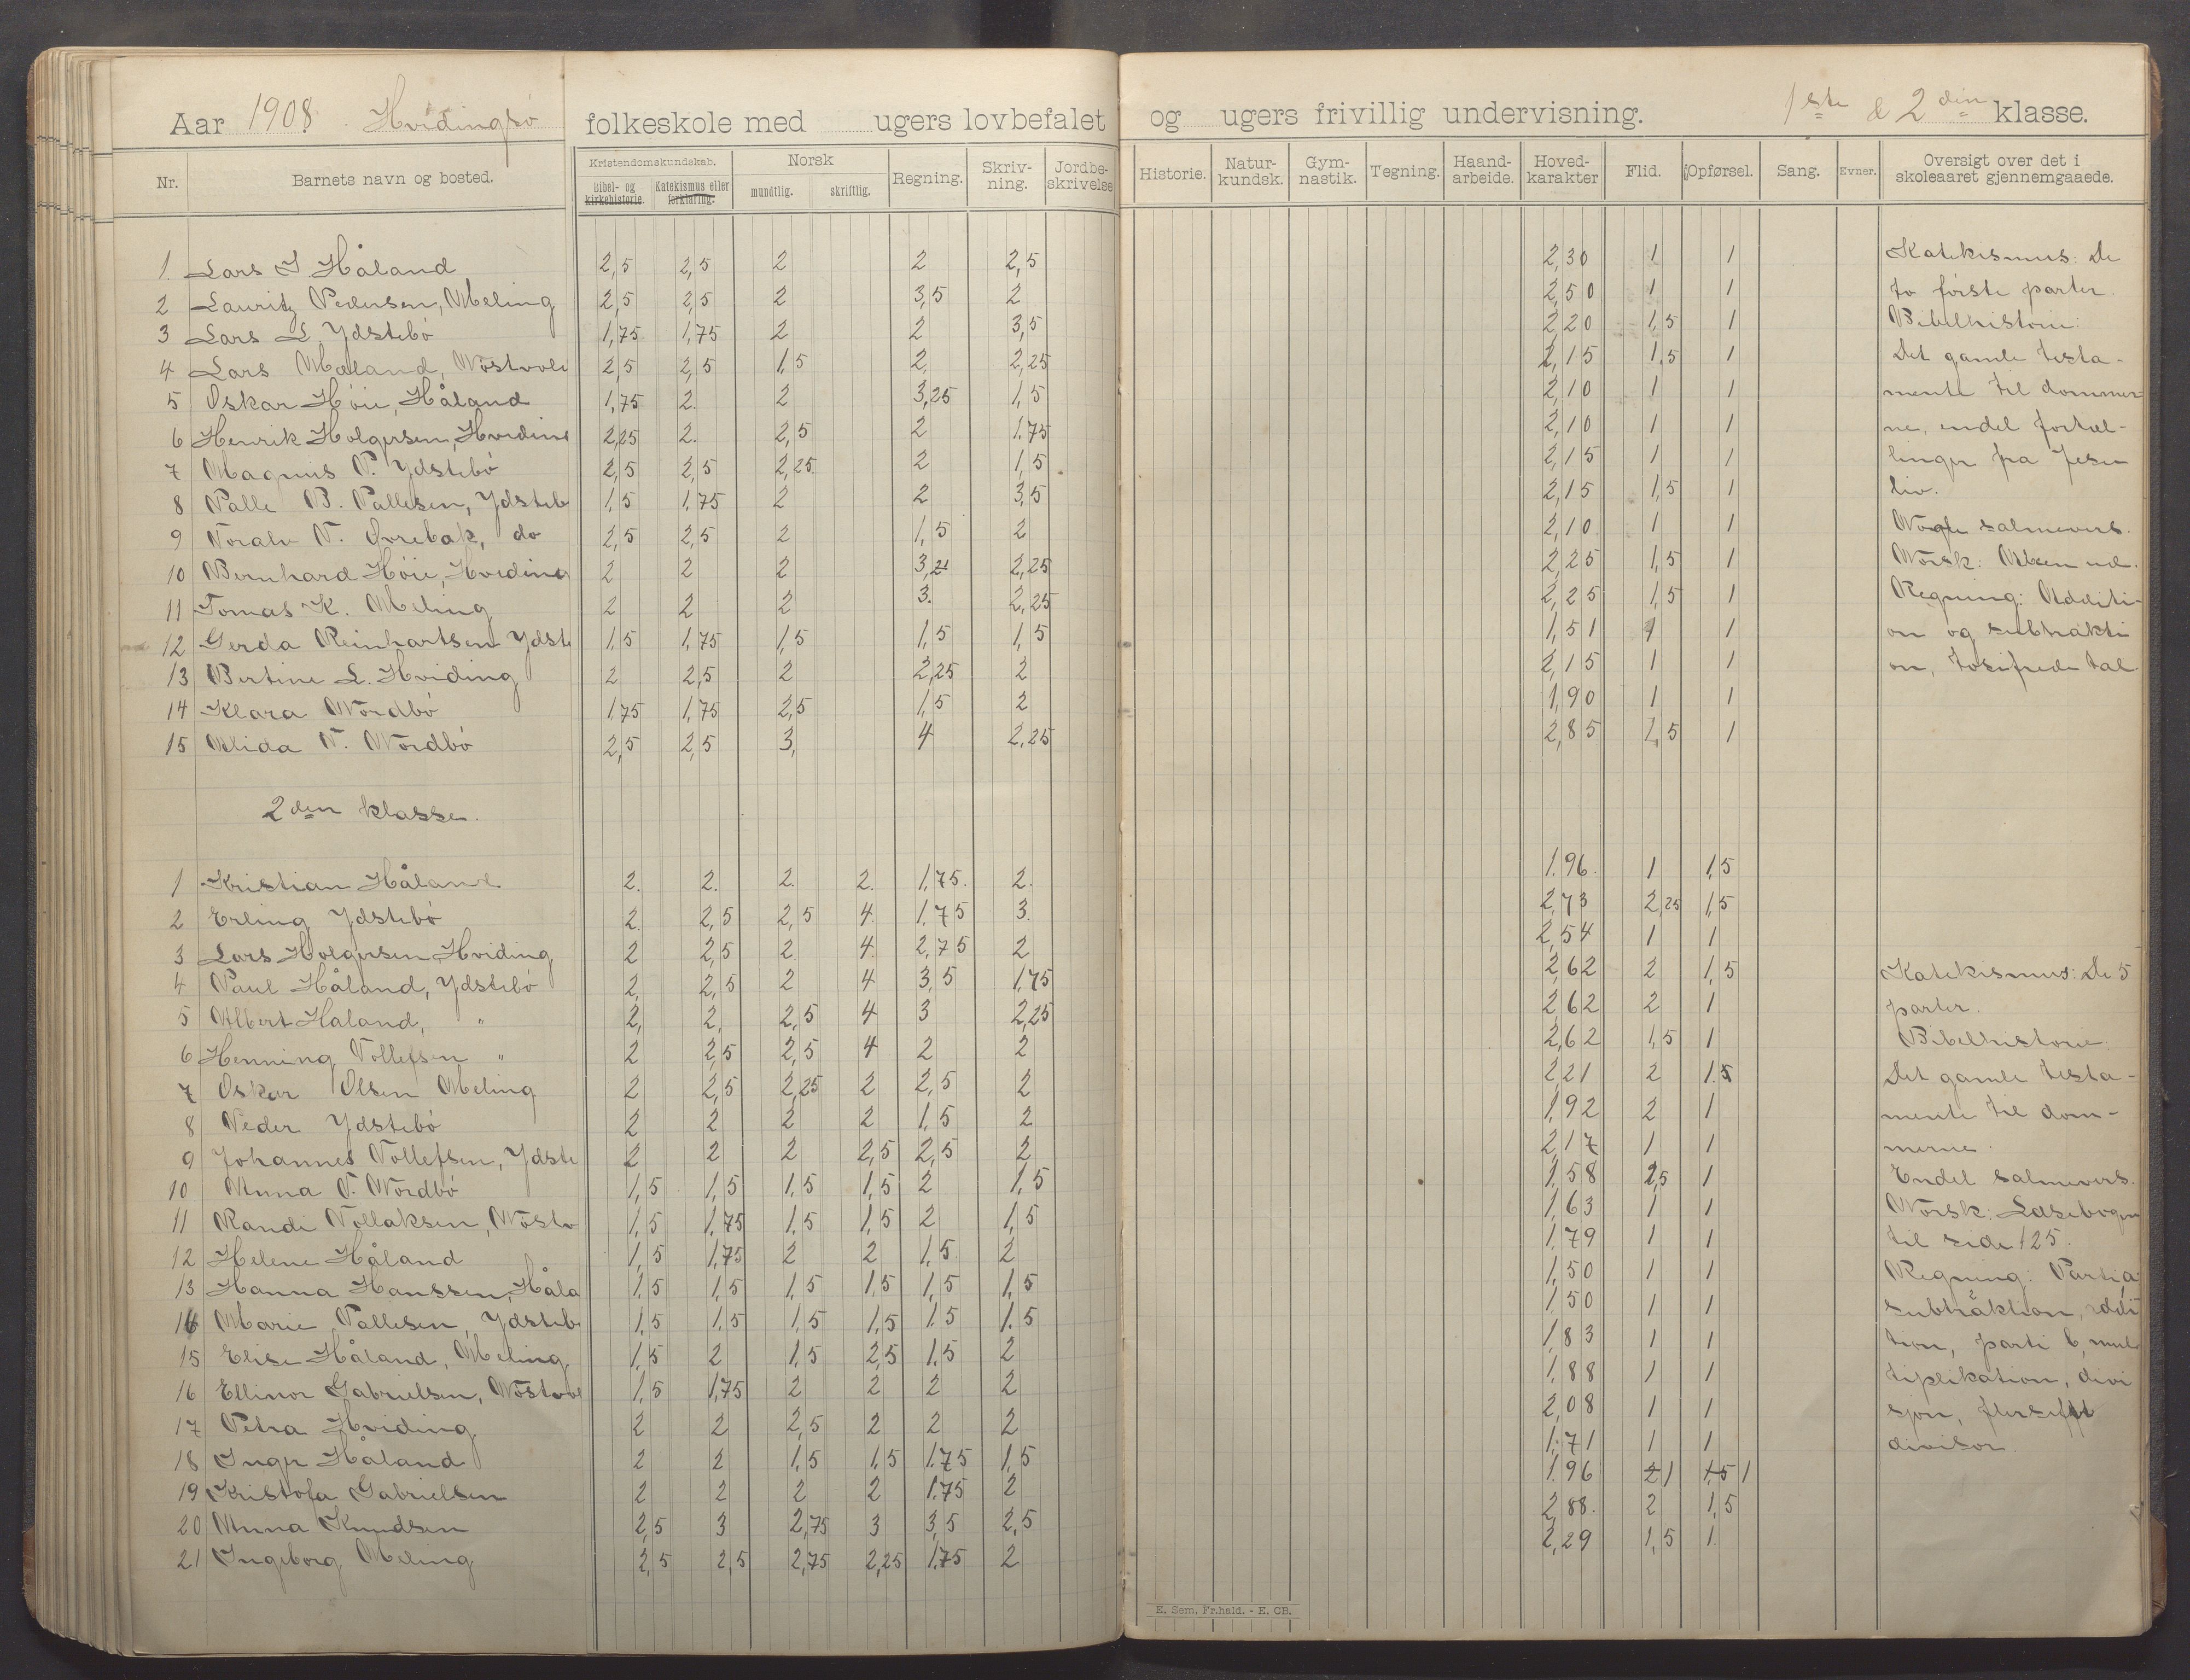 Aar 1908. Hvidingsö folkeskole med ugers lovbefalet og ugers frivillig undervisning. 1ste & 2den klasse.
Nr. Barnets navn og bosted. Kristendomskundskab. Bibel- og kirkehistorie. Katekismus eller forklaring. Norsk mundtlig. skriftlig. Regning. Skriv-ning. Jordbe-skrivelse Historie. Natur-kundsk. Gym-nastik. Tegning. Haand-arbeide. Hoved-karakter Flid. Opførsel. Sang. Evner. Oversigt over det i skoleaaret gjennemgaaede.
1. Lars J. Håland 2,5 2,5 2 2 2,5 2,30 1 1 Katekismus: De
2 Lauritz Pedersen, Meling 2,5 2,5 2 3,5 2 2,50 1 1 to förste parter.
3 Lars L. Ydstebö 1,75 1,75 2 2 3,5 2,20 1,5 1 Bibelhistorie:
4 Lars Mæland, Nöstvold 2,5 2,5 1,5 2, 2,25 2,15 1,5 1 Det gamle testa-
5 Oskar Höie, Håland 1,75 2. 2 3,25 1,5 2,10 1 1 mente til dommer
6 Henrik Holgersen, Hviding 2,25 2. 2,5 2 1.75 2,10 1 1 ne, endel fortæl-
7 Magnus P. Ydstebö 2,5 2,5 2,25 2 1,5 2,15 1 1 linger fra Jesu
8 Palle B. Pallesen, Ydsteb 1,5 1,75 2 2 3,5 2,15 1,5 1 liv.
9 Toralv T. Övrebak, do 2,5 2,5 2 1,5 2 2,10 1 1 Nogle salmevers.
10 Bernhard Höie, Hviding 2 2 2 2,25 2,25 1,5 1 Norsk: Abcen ud.
11 Tomas K. Meling 2 2 2 3. 2,25 2,25 1,5 1 Regning: Additi-
12 Gerda Reinhartsen Ydste 1,5 1,75 1,5 1,5 1,5 1,51 1 1 on og subtrakti
13 Bertine L. Hviding 2 2,5 2 2,25 2 2,15 1 1 on, tosifrede tal.
14 Klara Nordbö 1,75 1,75 2,5 1,5 2 1,90 1 1
15 Alida T. Nordbö 2,5 2,5 3, 4 2,25 2,85 1,5 1
2den klasse.
1 Kristian Håland 2. 2. 2. 2. 1,75. 2. 1.96. 1 1,5
2 Erling Ydstebö 2. 2,5 2,5 4. 1.75 3. 2,73 2,25 1,5
3 Lars Holgersen, Hviding 2 2,5 2 4. 2,75 2 2,54 1 1
4 Paul Håland, Ydstebö 2, 2,5 2 4 3,5 1,75 2,62 2 1,5 Katekismus: De 5
5 Albert Haland, " 2, 2, 2,5 4 3 2,25 2,62 2 1 parter.
6 Henning Tollefsen " 2 2,5 2,5 4 2 2 2,62 1,5 1 Bibelhistorie:
7 Oskar Olsen Meling 2 2,5 2,25 2 2,5 2 2,21 2 1.5 Det gamle testa-
8 Peder Ydstebö 2 2 2 2 1,5 2 1,92 2 1 mente til dom-
9 Johannes Tollefsen, Ydste 2 2 2 2,5 2,5 2 2,17 1 1 merne.
10 Anna T. Nordbö 1,5 1,5 1,5 1,5 2 1,5 1,58 2,5 1 Endel salmevers.
11 Randi Tollaksen, Nöstv 1,5 1,75 1,5 1,5 2 1,5 1,63 1 1 Norsk: Læsebogen
12 Helene Håland 1,5 1,75 2 2 1,5 2 1,79 1 1 til side 125.
13 Hanna Hanssen, Håla 1,5 1,5 1,5 1,5 1,5 1,5 1,50 1 1 Regning: Parti a
14 Marie Pallesen, Ydsteb 1,5 1,5 1,5 1,5 1.5 1.5 1.50 1 1 subtraktion, addi
15 Elise Håland, Meling. 1,5 2 1,5 2,5 1.5 2 1,83 1 1 tion, parti b, mul
16 Ellinor Gabrielsen, Nöstvol 1,5 1,75 2 2 2 2 1,88 1 1 tiplikation, divi
17 Petra Hviding 2 2 2,5 2 2 2 2,08 1 1 sjon, flersifret
18 Inger Håland 2 2 1,5 1,5 1.75 1,5 1,71 1 1 divisor.
19 Kristofa Gabrielsen 2 2 2 2 1.75 2 1.96 2 1 1.5 1
20 Anna Knudsen 2,5 3 2,75 3 3,5 2,5 2,88. 2 1,5
21 Ingeborg Meling 2,5 2,5 2,75 2,25 1.75 2 2,29 1,5 1.
E. Sem, Fr.hald. - E. CB.